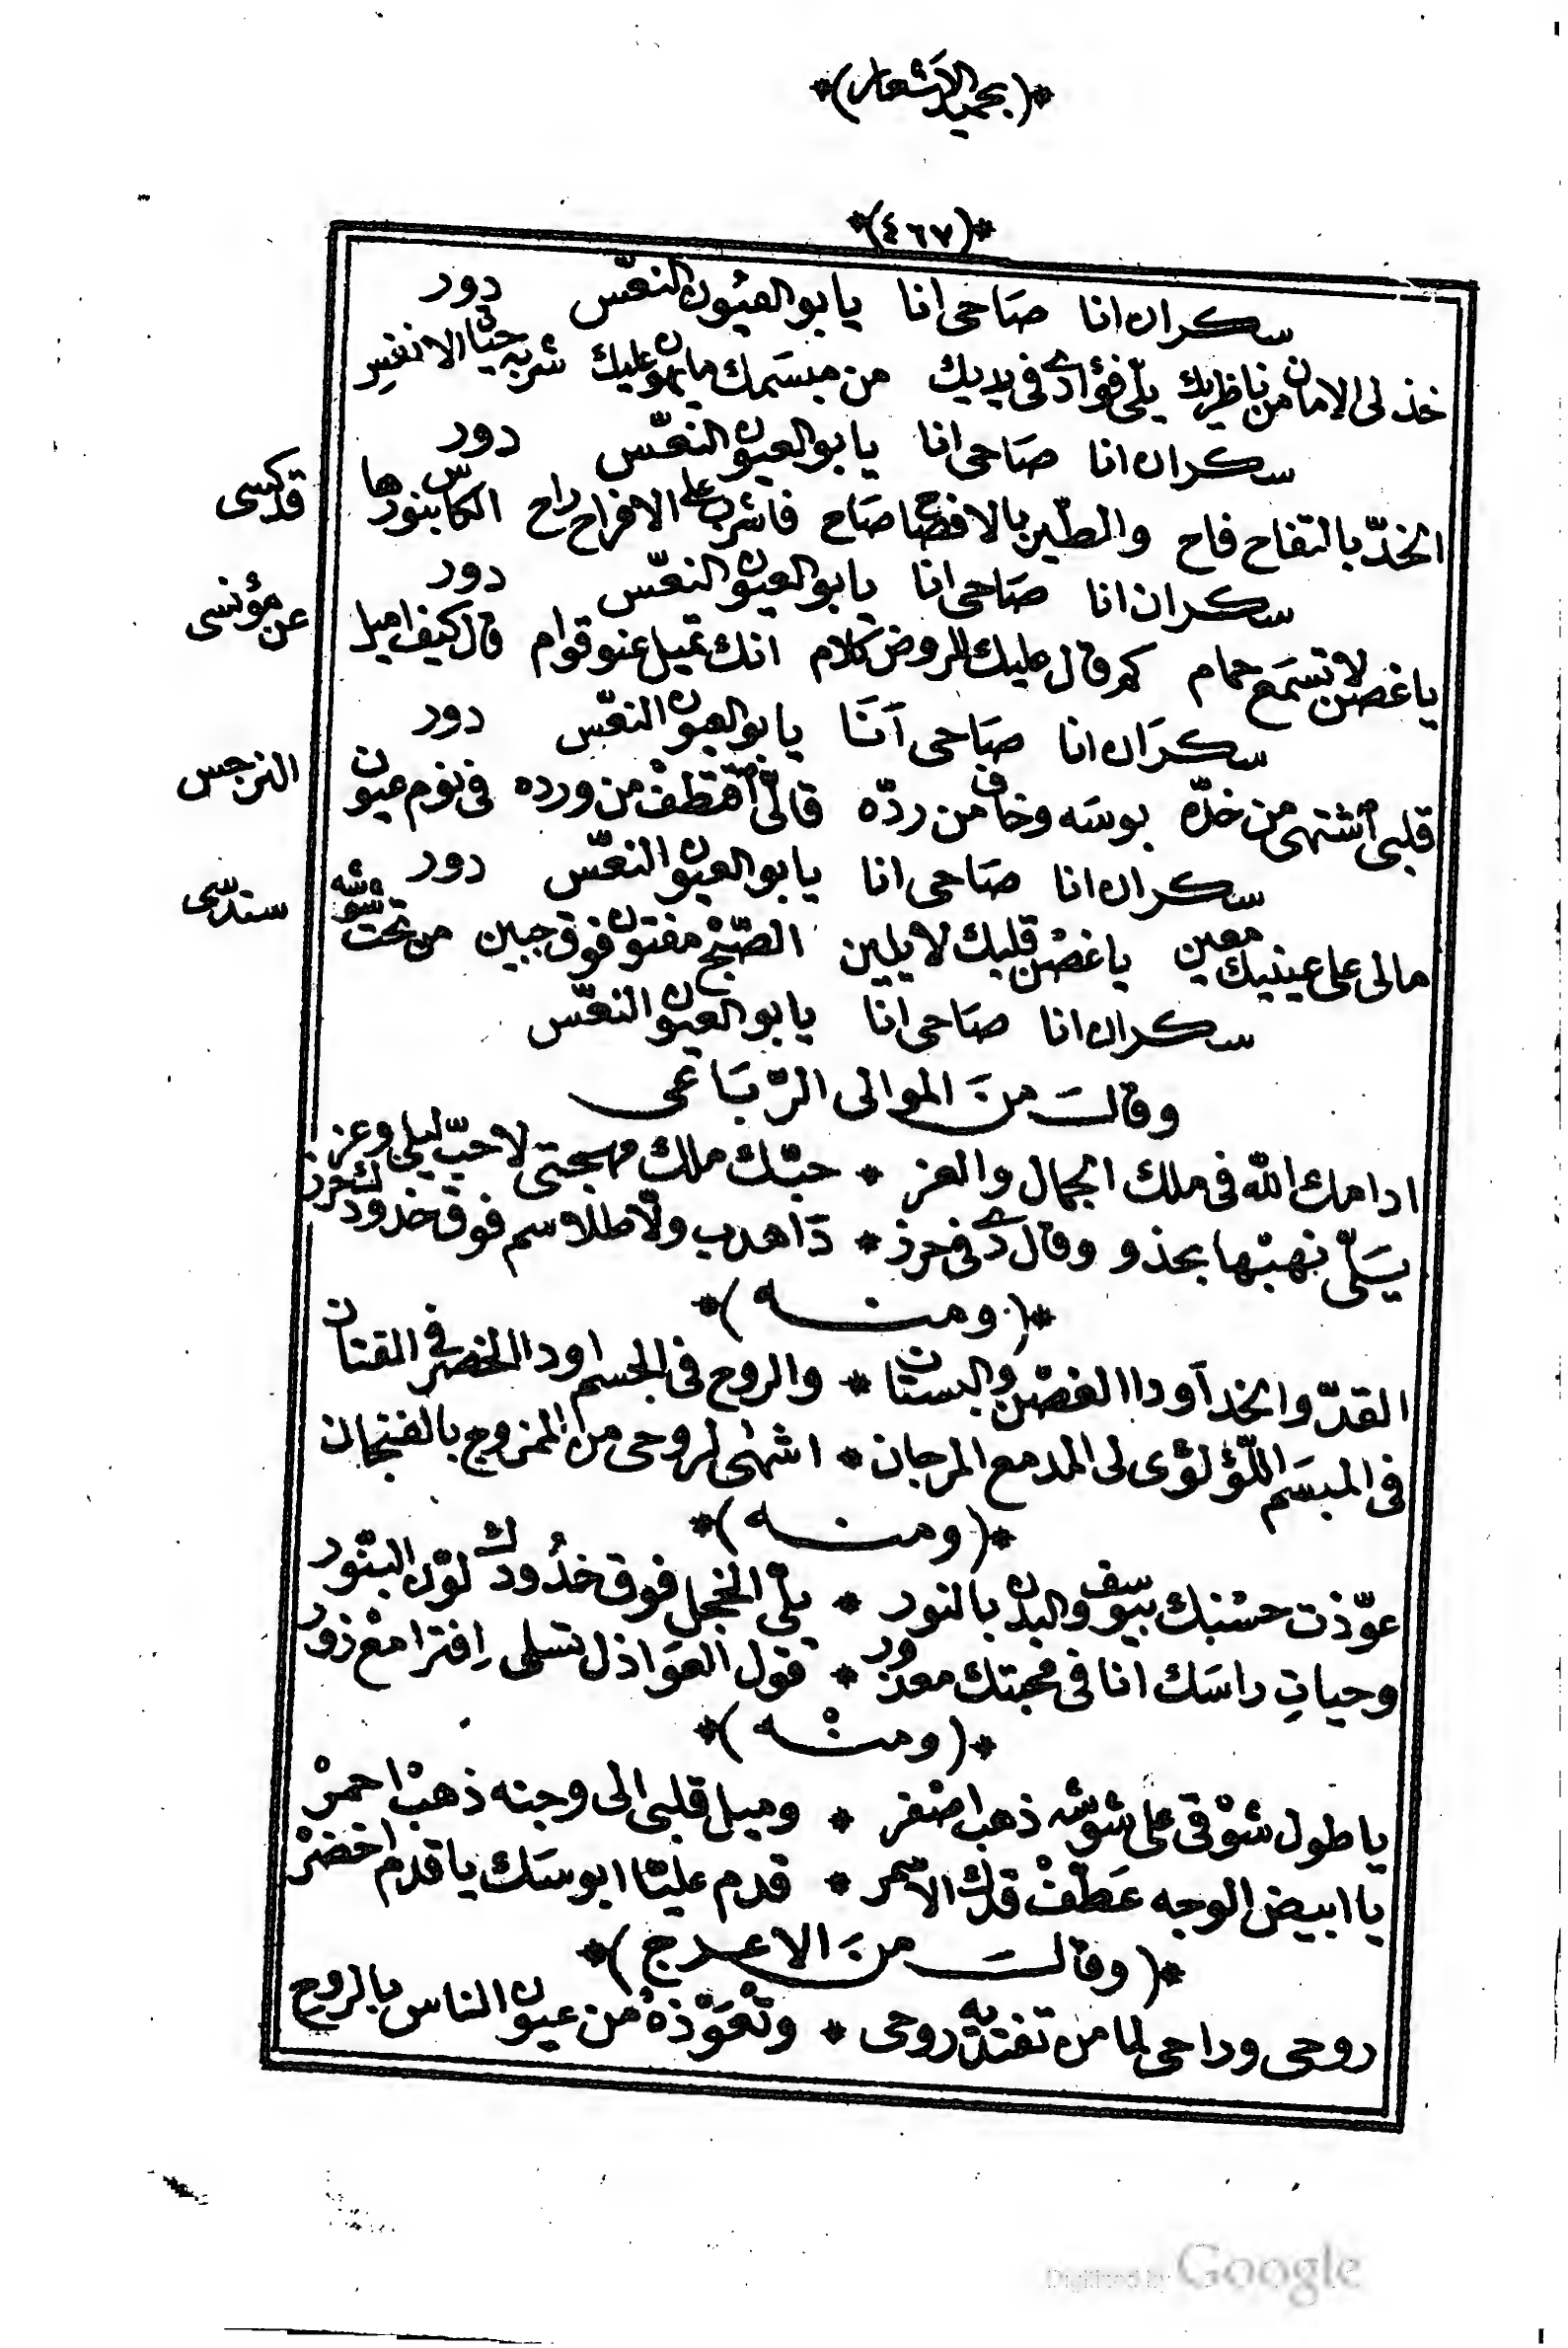 *(بحميد الاشعار)*
*(٤٦٧)*
سكران انا صَاحى انا يابو العيُون النعّس دور
خذ لى الامان من ناظريك يلّى فؤادى فى يديك من مبسَمك ما يهون عليك شربه حيا الانفسِ
سكران انا صَاحى انا يابو العيون النعّس دور
الخدّ بالتفاح فاح والطير بالافصاح صَاح فاشرب على الافراح راح الكاس بنورها قد كسى
سكران انا صَاحى انا يابو العيون النعّس دور
ياغصن لا تسَمَع حمام كم قال عليك للروض كلام انك تميل عنو قوام قال كيف اميل عن مؤنسى
سكرَان انا صَاحى اَنَا يابو العيون النعّس دور
قلبى اشتهى من خدّه بوسَه وخاف من ردّه قالّى اقتطفْ من ورده فى نوم عيون النرجس
سكران انا صَاحى انا يابو العيون النعّس دور
مالى على عينيك معين ياغصْن قلبك لا يلين الصّبْح مفتون فوق جبين من تحت شوشه سندسّى
سكران انا صَاحى انا يابو العيون النعّس
وقالت منَ الموالى الرّبَاعى
ادامك الله فى ملك الجمال والعز * حبّك ملك مهجتى لا حبّ ليلى وعز
يسَلّى نهبْها بخدو وقال دى فى حرز * دَاهدب ولّا طلاسم فوق خدودك حرز
*(ومنه)*
القدّ والخد اَودا الغصْن والبستان * والروح فى الجسم اودا الخصر فى القفتان
فى المبسَم اللّؤلؤى لى المدمع المرجان * اشهٰى لروحى من الممزوج بالفنجان
*(ومنه)*
عوّذت حسْنك بيوسف والبدن بالنور * يلّى الخجل فوق خدُودك لوّن البنّور
وحياتِ راسَك انا فى محبتك معذور * قول العوَاذل تسلى اِفترا معْ زور
*(ومنْه)*
ياطول شوْقى على شوشه ذهب اصْفر * وميل قلبى الى وجنه ذهبْ احمرْ
يا ابيض الوجه عَطّفْ قدّك الاسْمر * قدم عليّا ابوسَك ياقدم اخضرْ
*(وقالت منَ الاعرج)*
روحى وراحى لما من تفتديه روحى * وتْعوّذهُ من عيون الناس بالروح